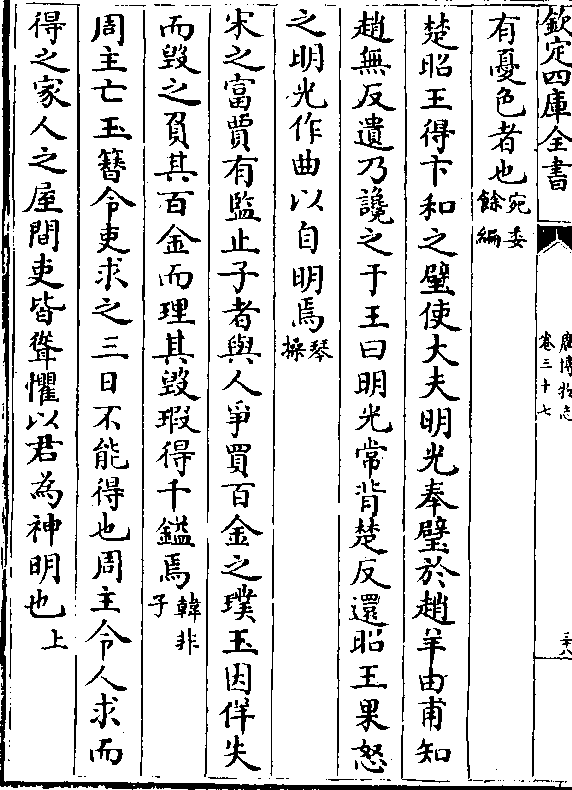 欽定四庫全書
廣博物志
卷三十七
三十八
有憂色者也宛委
餘編
楚昭王得卞和之璧使大夫明光奉璧於趙羊由甫知
趙無反遺乃讒之于王曰明光常背楚反還昭王果怒
之明光作曲以自明焉琴
操
宋之富賈有監止子者與人爭買百金之璞玉因佯失
而毀之負其百金而理其毀瑕得千鎰焉韓非
子
周主亡玉簪令吏求之三日不能得也周主令人求而
得之家人之屋間吏皆聳懼以君為神明也上